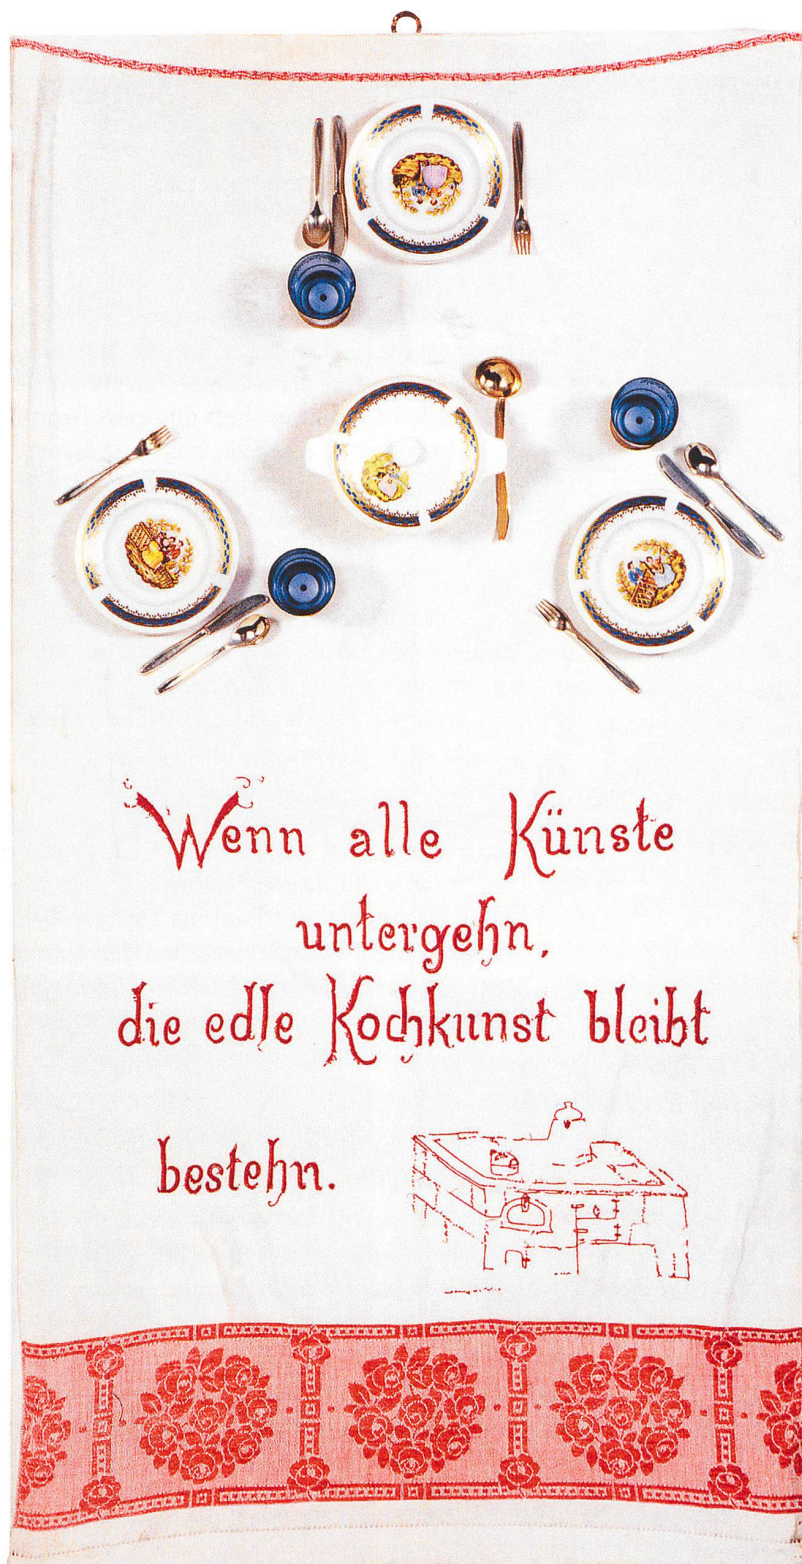 Wenn alle Künste
untergehn,
die edle Kochkunst bleibt
bestehn.